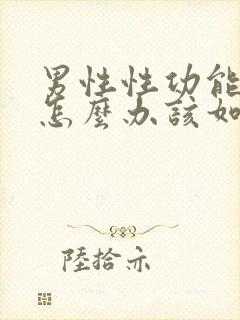 男性性功能
怎麼办該如
陸拾亦